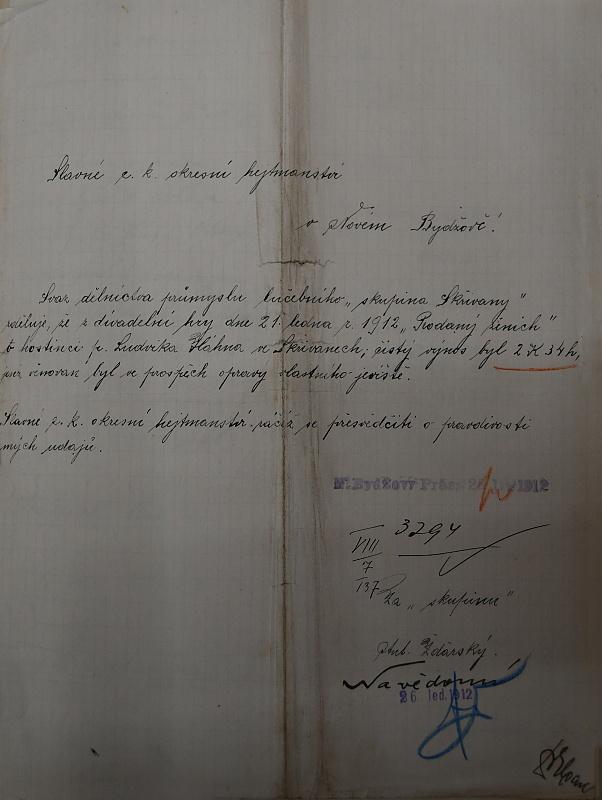 Slavné c. k. okresní hejtmanství
v Novém Bydžově!
Svaz dělnictva průmyslu lučebního „skupina Skřivany"
sděluje, že z divadelní hry dne 21. ledna r. 1912 „Prodaný ženich"
v hostinci p. Ludvíka Hláhna ve Skřivanech, čistý výnos byl 2 K 34 h,
jenž věnován byl ve prospěch opravy vlastního jeviště.
Slavné c. k. okresní hejtmanství ráčíž se přesvědčiti o pravdivosti
mých udajů.
N. Bydžov 1912
3294
VIII
7
137
Za „skupinu"
Ant. Žďárský.
Na vědomí
26 led. 1912